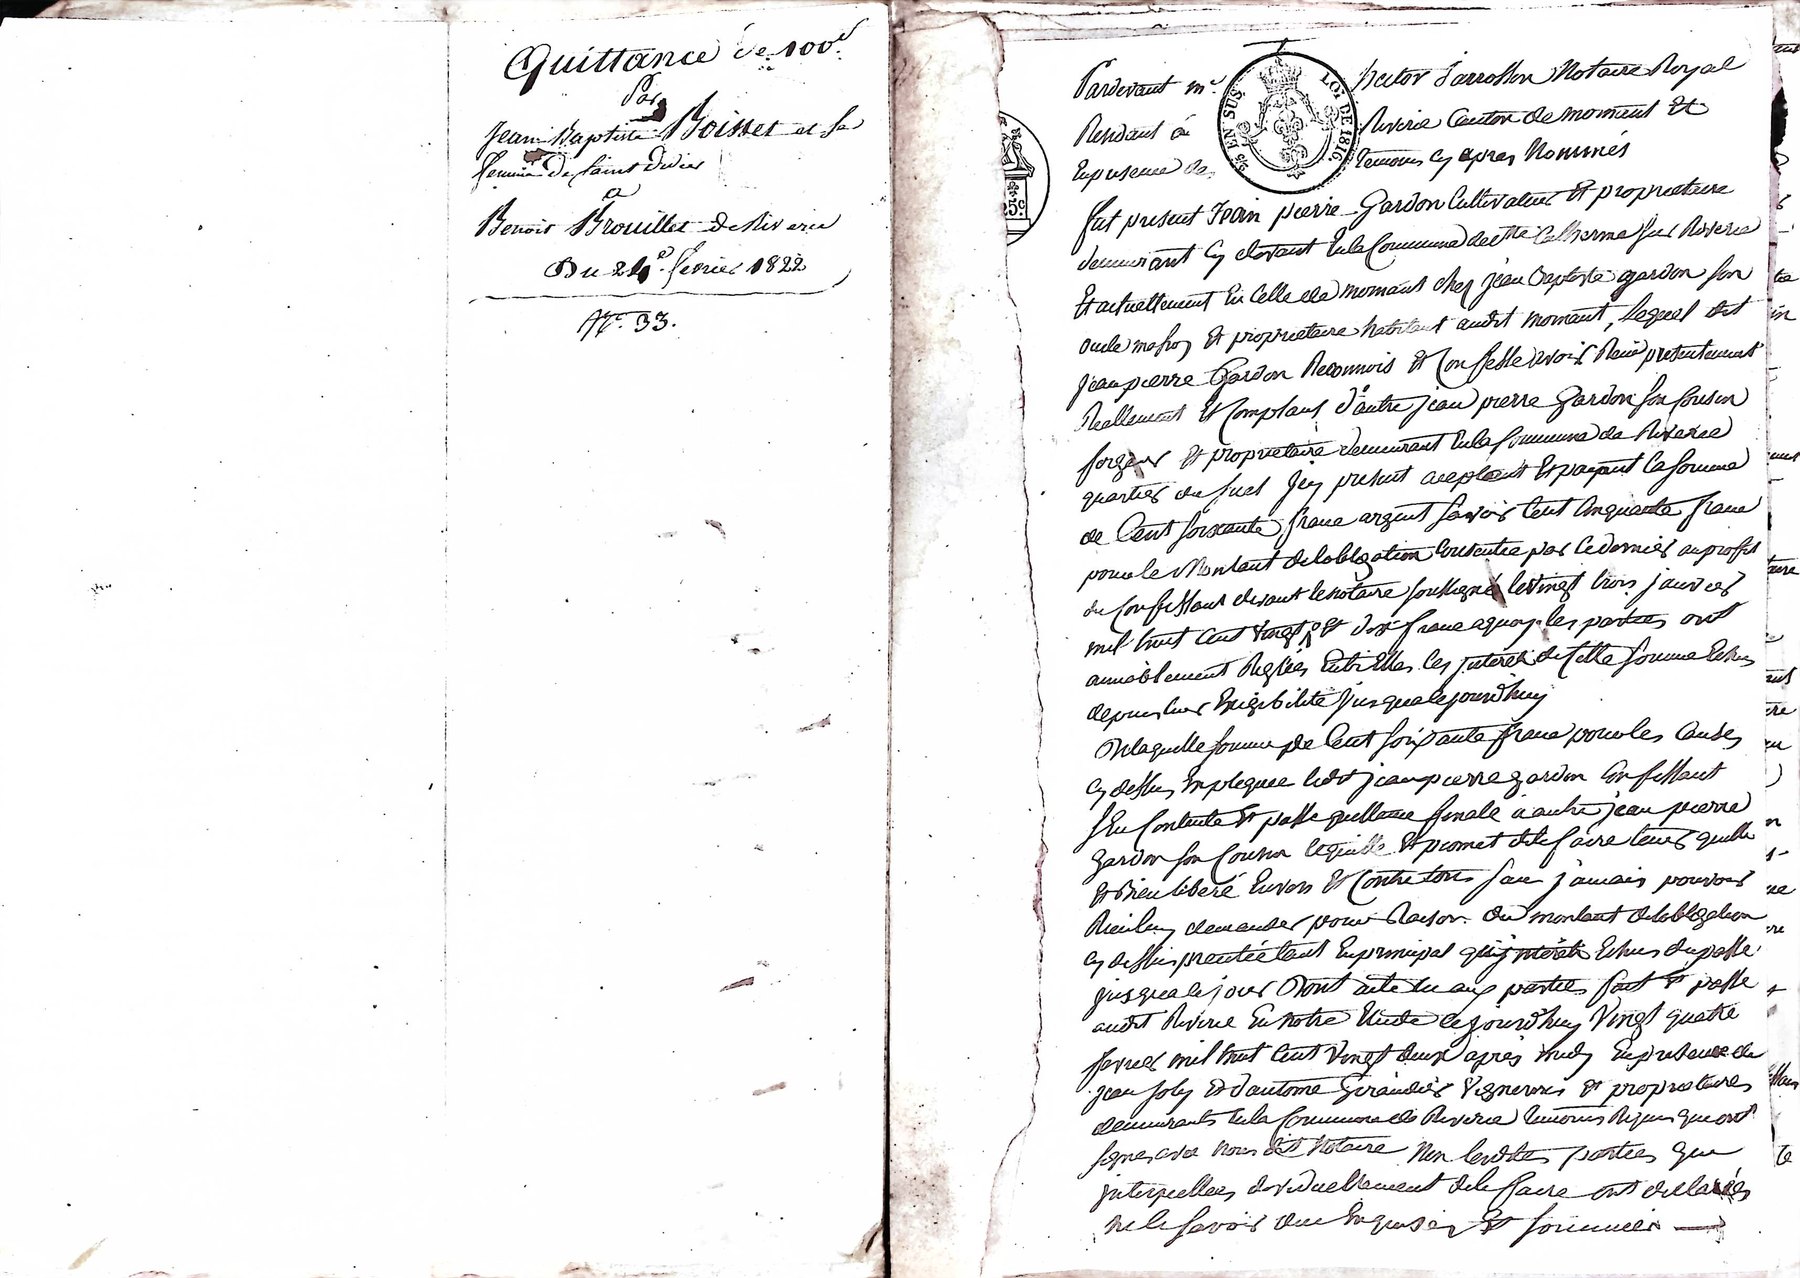 Quittance de 100#
Par
Jean Baptiste Boisset et sa
femme de Saint Didier
a
Benoit Brouillet de Riverie
Du 24e fevrier 1822
No. 33.
Pardevant me hector Jarrosson Notaire Royal
Residant à Riverie Canton de mornant Et
En presence des temoins cy apres Nommés
fut present Jean pierre Gardon Cultivateur Et proprietaire
demeurant cy devant En la Commune de Ste Catherine sur Riverie
Et actuellement En Celle de mornant chez jean Baptiste gardon son
oncle masson Et proprietaire habitant audit mornant, Lequel dit
jean pierre Gardon Reconnois Et Confesse avoir Reçu presentement
Reellement Et Comptant d'autre jean pierre Gardon son Cousin
forgeur Et proprietaire demeurant En la Commune de Riverie
quartier du Jcy present acceptant Et payant la somme
de Cent soixante franc argent savoir Cent Cinquante franc
pour le Montant de lobligation Consentie par Ce dernier au proffit
du Confessant devant le notaire soussigné le vingt trois janvier
mil huit Cent vingt Et dix franc a quoy les parties ont
amiablement Reglées Entr'Elles les jnterets de Cette somme Echus
depuis leur Exigibilité Jusqua le jourdhuy
De laquelle somme de Cent soixante franc pour les Causes
cy dessus Expliquée ledit jean pierre gardon Confessant
sen Contente Et passe quittance finale à autre jean pierre
gardon son Cousin lequitte Et promet de le faire tenir quitte
Et Bien liberé Envers Et Contre tous sans j'amais pouvoir
Rien luy demander pour Raison du montant de lobligation
cy dessus tant En principal qu'jnterets Echus du passé
jusqua le jour Dont acte lu aux parties fait Et passé
audit Riverie En notre Etude Ce jourd'huy Vingt quatre
fevrier mil huit Cent Vingt deux après midy En presence de
jean Joly Et d'antoine Giraudier Vignerons Et proprietaires
demeurants En la Commune de Riverie temoins Requis qui ont
signés avec nous dit Notaire Non lesdites parties que
jnterpellées de le faire ont declarées
Ne le savoir de ce Enquises Et sommées
LOI DE 1816
5c